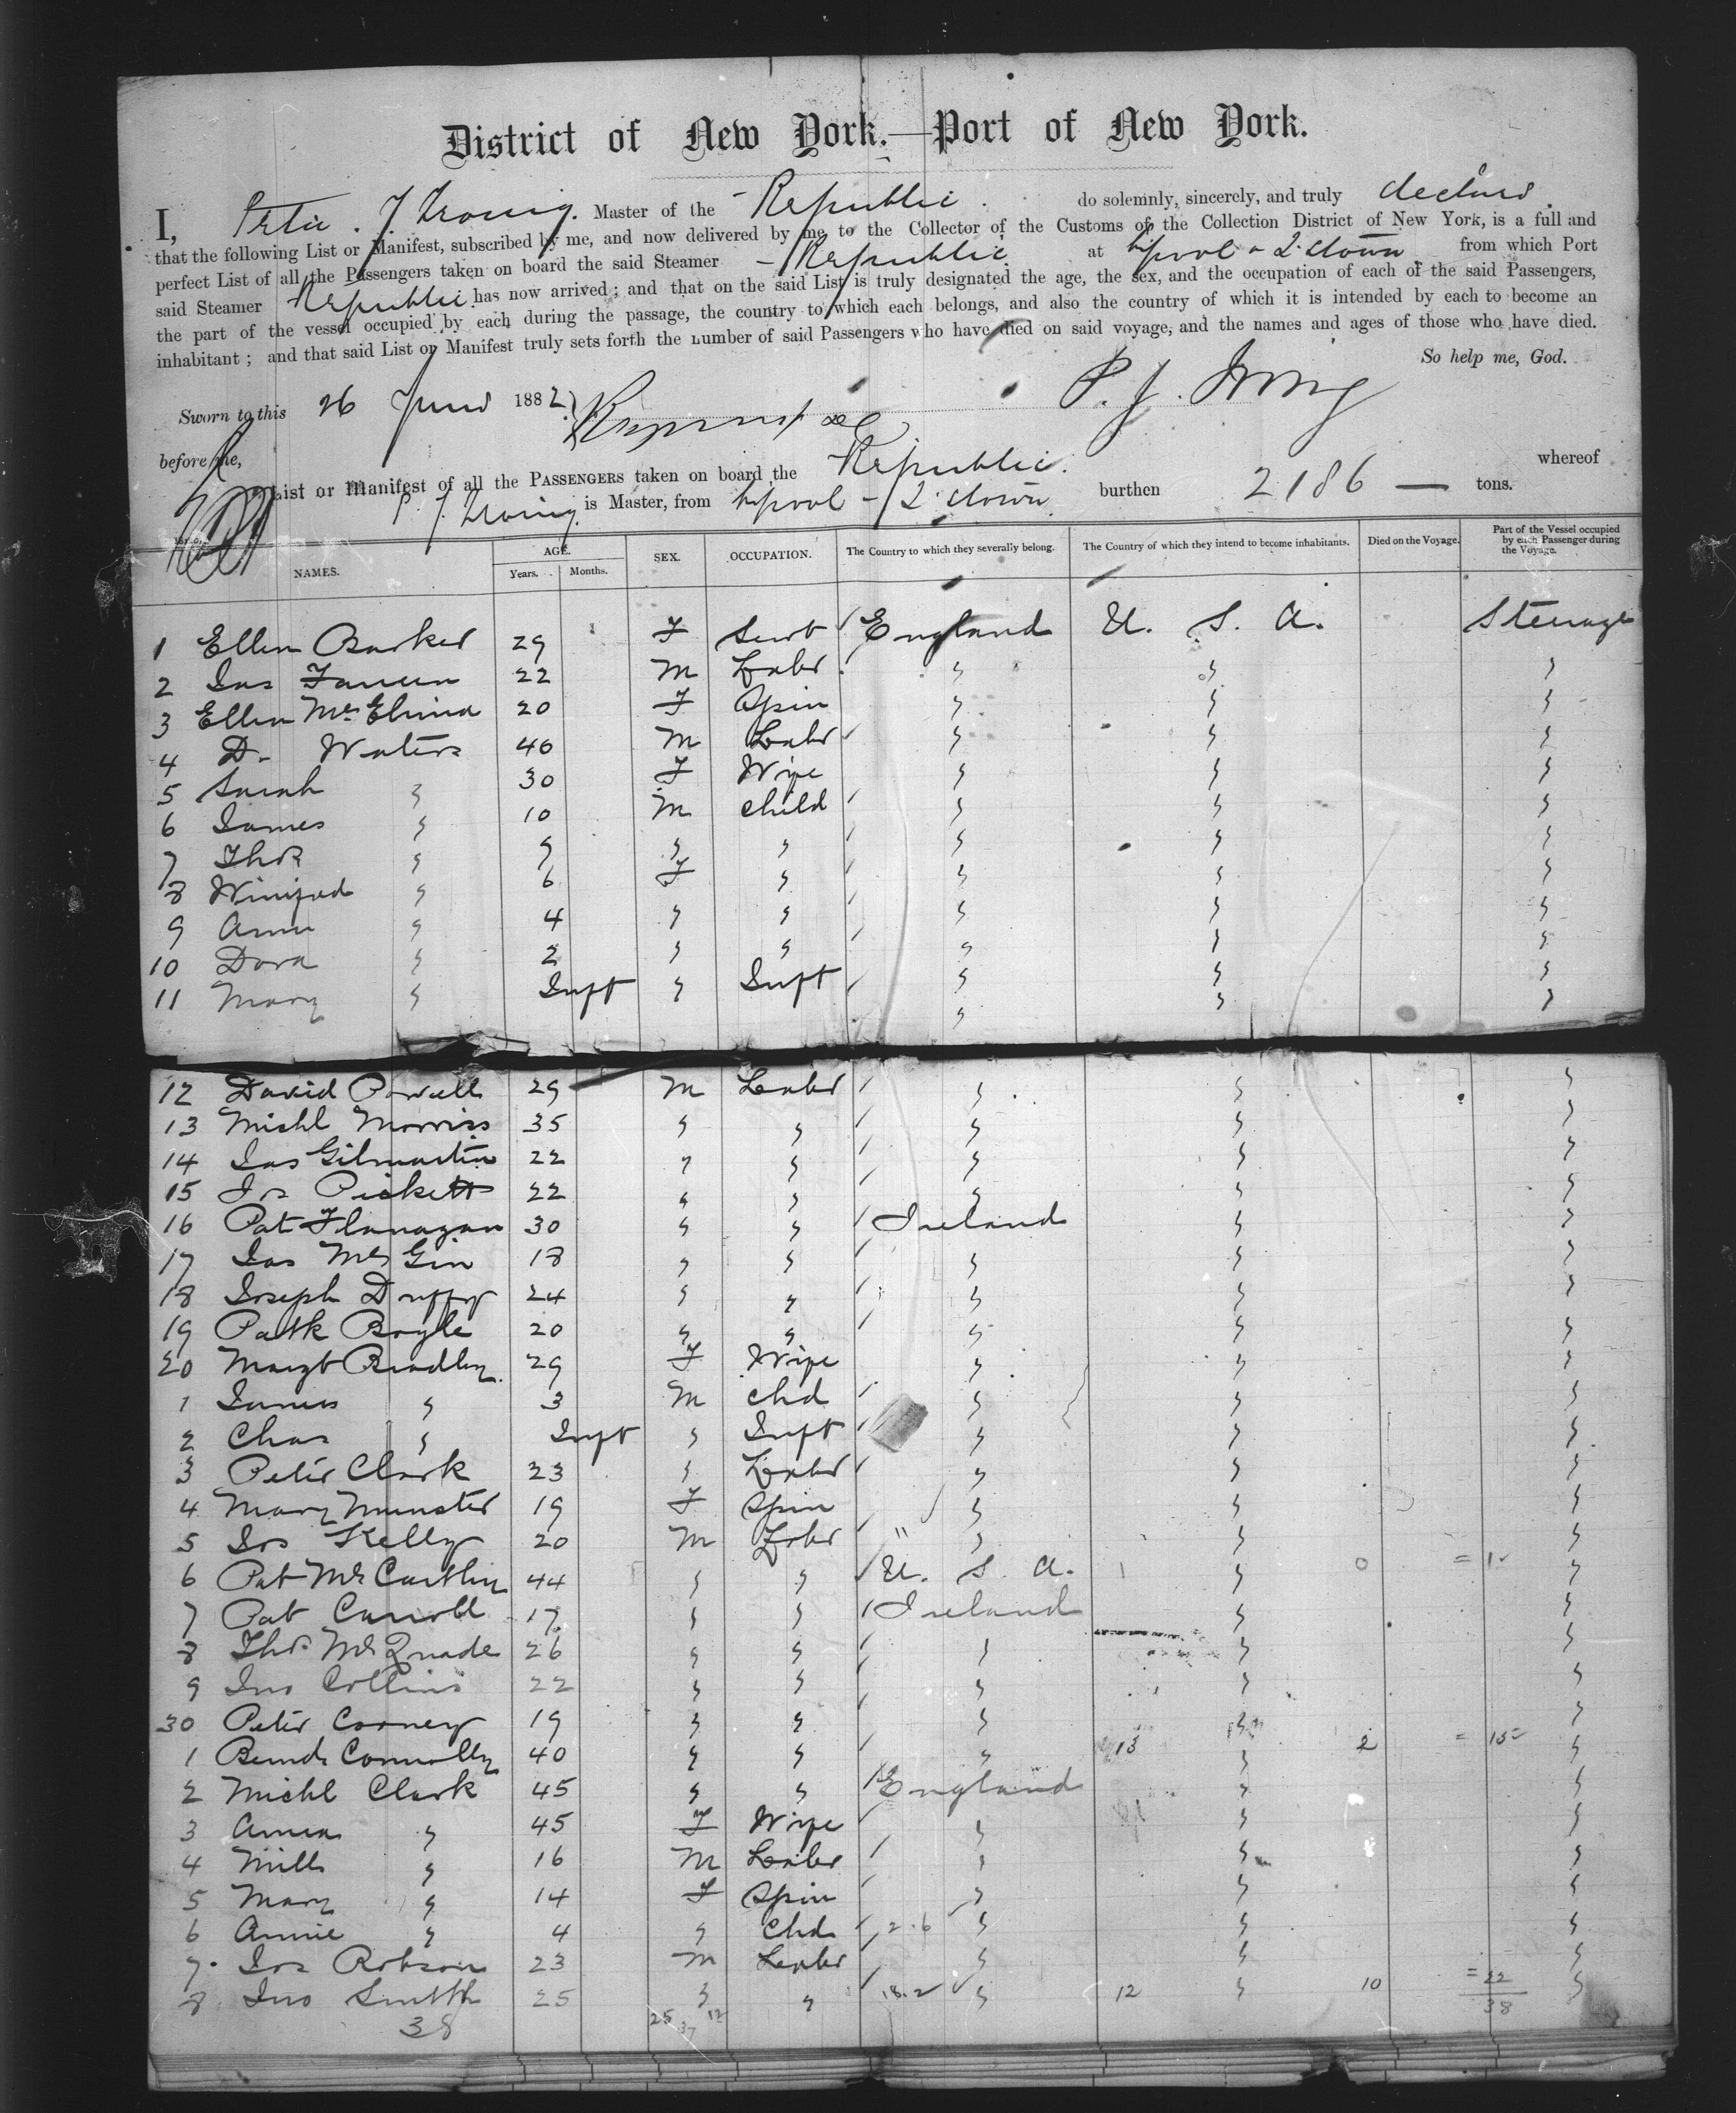 District of New York.—Port of New York.
I, Peter J. Irving. Master of the Republic. do solemnly, sincerely, and truly declare
that the following List or Manifest, subscribed by me, and now delivered by me, to the Collector of the Customs of the Collection District of New York, is a full and
perfect List of all the Passengers taken on board the said Steamer Republic at Lpool & Q. town from which Port
said Steamer Republic has now arrived; and that on the said List is truly designated the age, the sex, and the occupation of each of the said Passengers,
the part of the vessel occupied by each during the passage, the country to which each belongs, and also the country of which it is intended by each to become an
inhabitant; and that said List or Manifest truly sets forth the number of said Passengers who have died on said voyage, and the names and ages of those who have died.
So help me, God.
Sworn to this 26 June 1882 P. J. Irving
before me,
List or Manifest of all the PASSENGERS taken on board the Republic. whereof
P. J. Irving is Master, from Lpool - Q. town burthen 2186 — tons.
NAMES. AGE. Years. Months. SEX. OCCUPATION. The Country to which they severally belong. The Country of which they intend to become inhabitants. Died on the Voyage. Part of the Vessel occupied by each Passenger during the Voyage.
1 Ellen Barker 29 F Servt England U. S. A. Steerage
2 Jas 22 M Labr " " "
3 Ellen 20 F Spin " " "
4 D. Waters 40 M Labr " " "
5 Sarah " 30 F Wife " " "
6 James " 10 M Child " " "
7 Thos " 9 " " " " "
8 Winifred " 6 F " " " "
9 Annie " 4 " " " " "
10 Dora " 2 " " " " "
11 Mary " Inft " Inft " " "
12 David Powell 29 M Labr " " "
13 Michl Morriss 35 " " " " "
14 Jas Gilmartin 22 " " " " "
15 Jos Pickett 22 " " " " "
16 Pat Flanagan 30 " " Ireland " "
17 Jas McGin 18 " " " " "
18 Joseph Duffy 24 " " " " "
19 Patk Boyle 20 " " " " "
20 Margt Bradley 29 F Wife " " "
1 James " 3 M Chd " " "
2 Chas " Inft " Inft " " "
3 Peter Clark 23 " Labr " " "
4 Mary Munster 19 F Spin " " "
5 Jos Kelly 20 M Labr " " "
6 Pat McCarthy 44 " " U. S. A. 1 " 0 = 1 "
7 Pat Carroll 17 " " Ireland " "
8 Thos McQuade 26 " " " " "
9 Jno Collins 22 " " " " "
30 Peter Corney 19 " " " " "
1 Bernd Connolly 40 " " " 13 " 2 = 15 "
2 Michl Clark 45 " " England " "
3 " 45 F Wife " " "
4 " 16 M Labr " " "
5 Mary " 14 F Spin " " "
6 Annie " 4 " Chd 2.6 " " "
7 Jos Robson 23 M Labr " " "
8 Jno Smith 25 " " 18.2 " 12 " 10 = 22 "
38 25 12 37 38